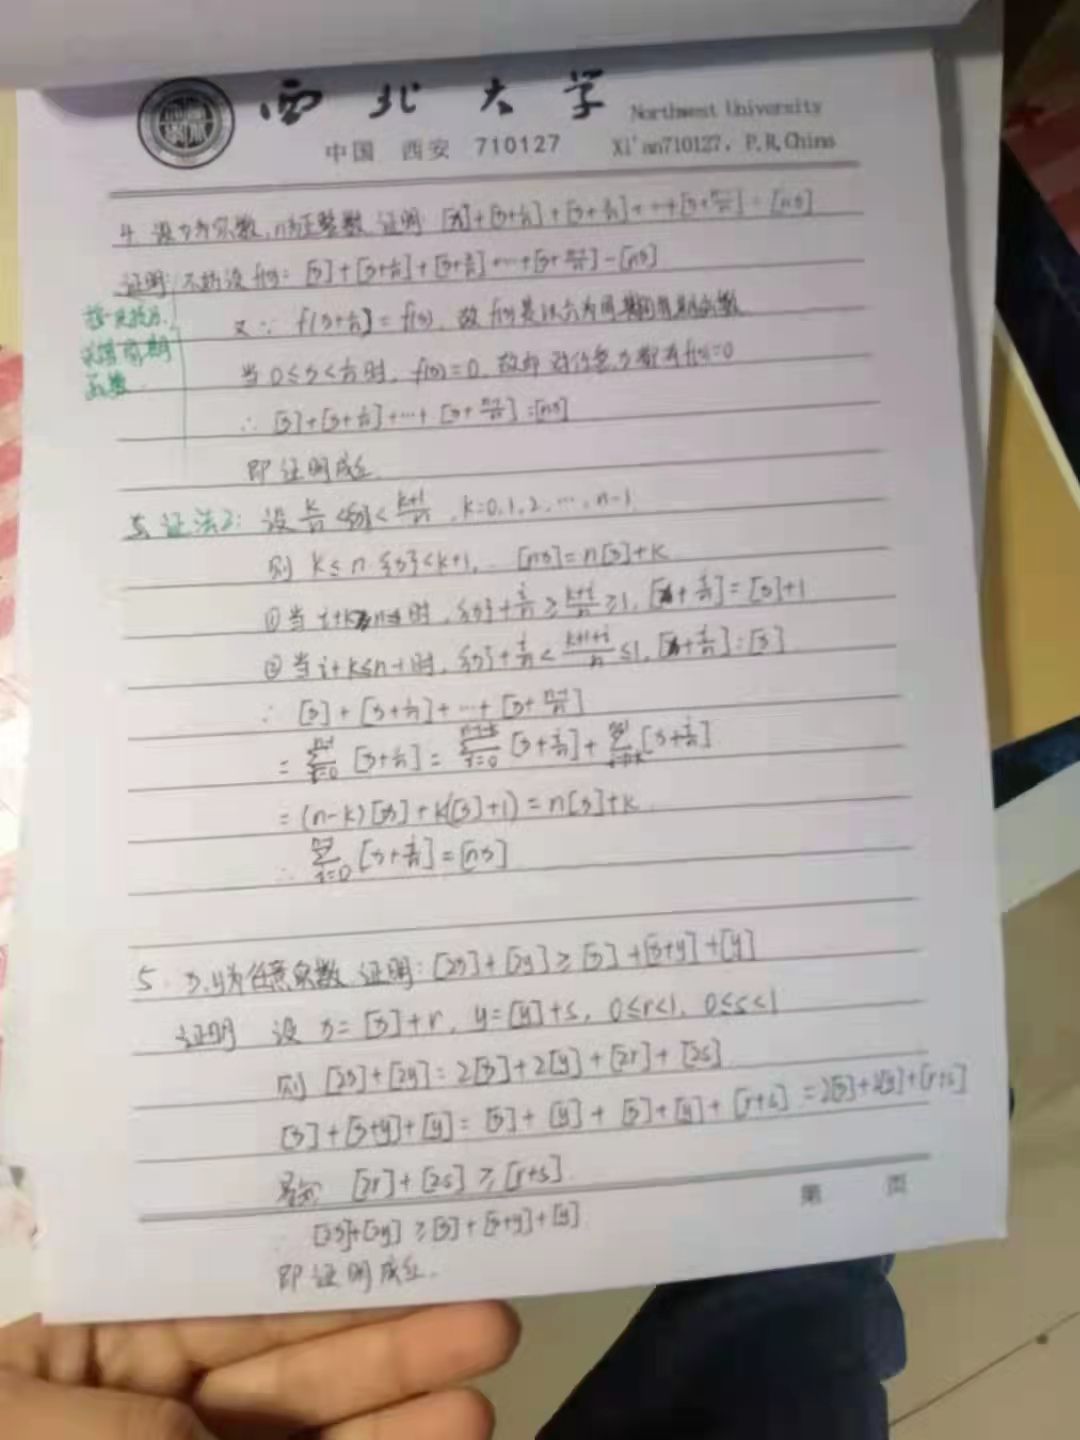 西北大学 Northwest University
中国 西安 710127 Xi'an710127, P.R.China
4. 设x为实数,n为正整数,证明 [x]+[x+1/n]+[x+2/n]+…+[x+(n-1)/n]=[nx]
证明: 不妨设f(x)=[x]+[x+1/n]+[x+2/n]+…+[x+(n-1)/n]-[nx]
又∵ f(x+1/n)=f(x), 故f(x)是以1/n为周期的周期函数
函数.
当0≤x<1/n时, f(x)=0, 故即对任意x都有f(x)=0
∴ [x]+[x+1/n]+…+[x+(n-1)/n]=[nx]
即证明成立
证法2: 设 k/n≤{x}<(k+1)/n, k=0,1,2,…,n-1
则 k≤n·{x}<k+1, [nx]=n[x]+k
①当 时, {x}+i/n≥(k+i)/n≥1, [x+i/n]=[x]+1
②当i+k≤n-1时, {x}+i/n<(k+1+i)/n≤1, [x+i/n]=[x]
∴ [x]+[x+1/n]+…+[x+(n-1)/n]
=∑_{i=0}^{n-1}[x+i/n]=∑_{i=0}^{n-1-k}[x+i/n]+∑_{i=n-k}^{n-1}[x+i/n]
=(n-k)[x]+k([x]+1)=n[x]+k
∴ ∑_{i=0}^{n-1}[x+i/n]=[nx]
5. x,y为任意实数,证明:[2x]+[2y]≥[x]+[x+y]+[y]
证明 设 x=[x]+r, y=[y]+s, 0≤r<1, 0≤s<1
则 [2x]+[2y]=2[x]+2[y]+[2r]+[2s]
[x]+[x+y]+[y]=[x]+[y]+[x]+[y]+[r+s]=2[x]+2[y]+[r+s]
易知 [2r]+[2s]≥[r+s]
[2x]+[2y]≥[x]+[x+y]+[y]
即证明成立.
第 页